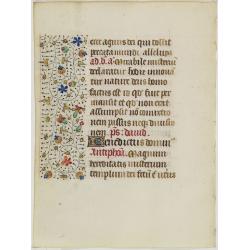 ecce agnus dei qui tollit
peccata mundi alleluya
Mirabile misteriu
declaratur hodie innova
tur nature deus homo
factus est id qd fuit per
mansit et qd non erat
assumpsit no comixtio
nem passus neqz diuisio
nem ps david
Benedictus dominus
Antiphona Magnum
hereditatis misterium
templum dei factu e uterus